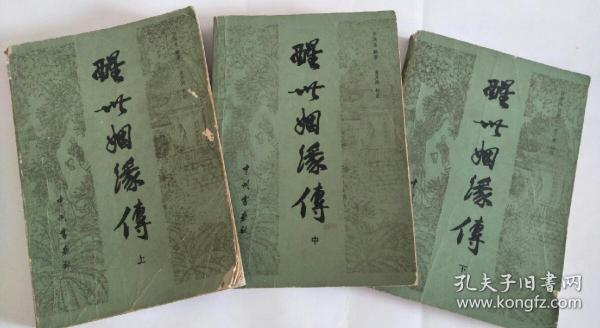 醒世姻缘傳
上
中州書画社
醒世姻缘傳
中
中州書画社
醒世姻缘傳
下
孔夫子旧書网
www.kongfz.com